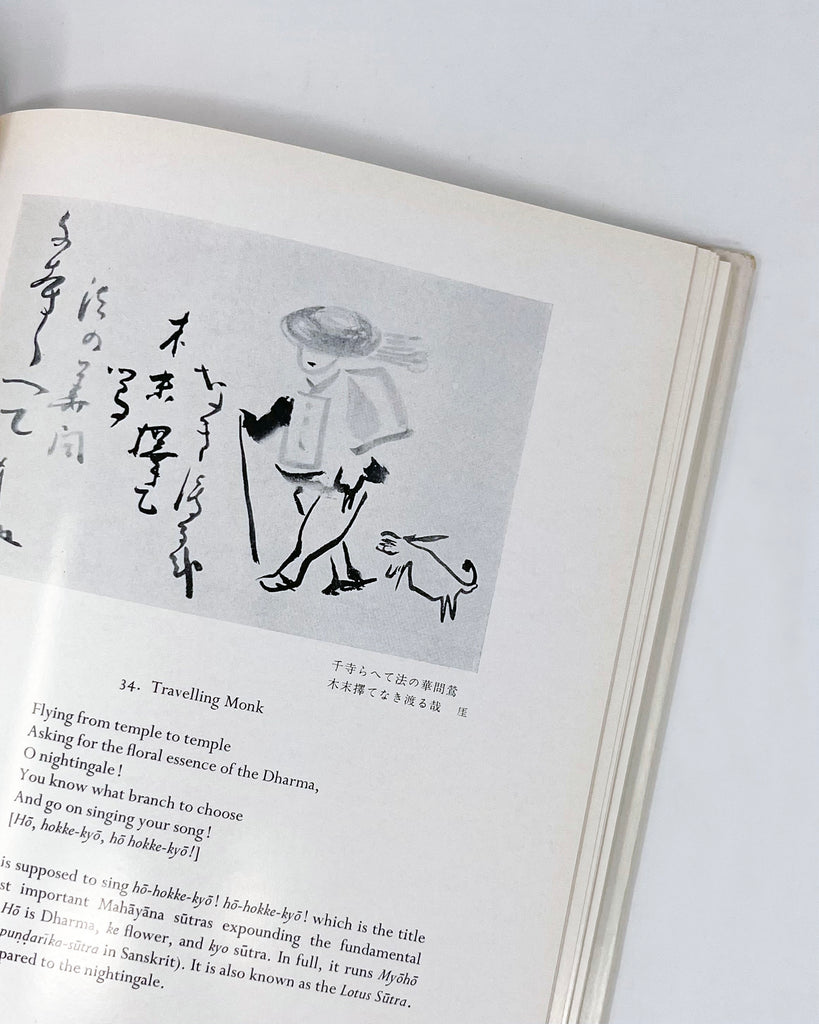 千寺らへて法の華問鶯
木末擇てなき渡る哉　厓
34. Travelling Monk
Flying from temple to temple
Asking for the floral essence of the Dharma,
O nightingale!
You know what branch to choose
And go on singing your song!
[Hō, hokke-kyō, hō hokke-kyō!]
is supposed to sing hō-hokke-kyō! hō-hokke-kyō! which is the title
st important Mahāyāna sūtras expounding the fundamental
Hō is Dharma, ke flower, and kyo sūtra. In full, it runs Myōhō
puṇḍarīka-sūtra in Sanskrit). It is also known as the Lotus Sūtra.
pared to the nightingale.